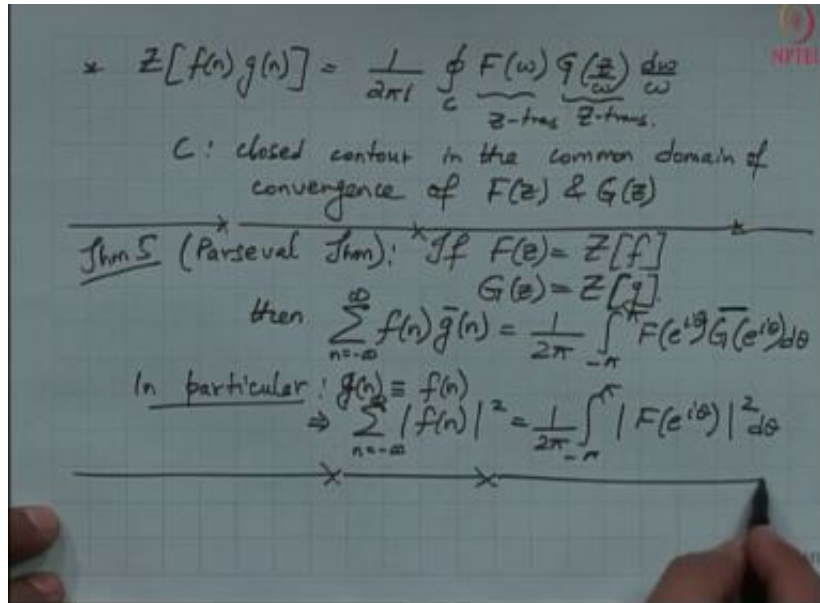 * Z[f(n) g(n)] = 1/2πi ∮_C F(ω) G(z/ω) dω/ω
Z-trans Z-trans.
C: closed contour in the common domain of
convergence of F(z) & G(z)
Thm 5 (Parseval Thm): If F(z) = Z[f]
G(z) = Z[g]
then ∑_{n=-∞}^{∞} f(n) ḡ(n) = 1/2π ∫_{-π}^{π} F(e^{iθ}) \overline{G}(e^{iθ}) dθ
In particular: g(n) ≡ f(n)
⇒ ∑_{n=-∞}^{∞} |f(n)|² = 1/2π ∫_{-π}^{π} |F(e^{iθ})|² dθ
NPTEL